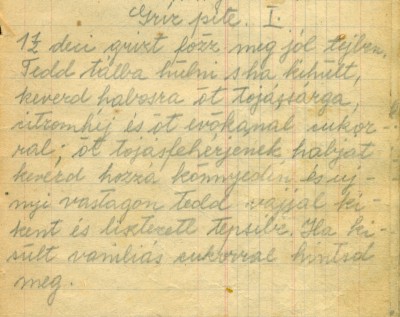 Gríz pite. I.
1½ deci grízt főzz meg jól tejben,
Tedd tálba hűlni s ha kihült,
keverd habosra öt tojássárga,
citromhéj és öt evőkanál cukor-
ral; öt tojásfehérjének habját
keverd hozzá könnyedén és uj-
nyi vastagon tedd vajjal ki-
kent és lisztezett tepsibe. Ha ki-
sült vaniliás cukorral hintsd
meg.